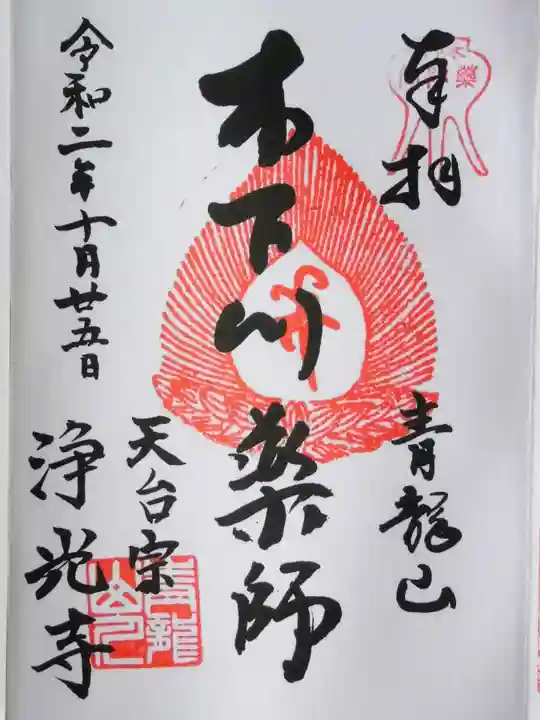 奉拝
青龍山
木下川薬師
天台宗
浄光寺
令和二年十月廿五日